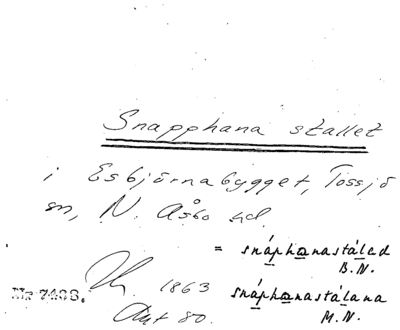 Snapphana stallet
i Esbjörnabygget, Tossjö
sn, N. Åsbo hd.
= snáphanastálad
B.N.
1863 snáphanastálana
M.N.
Nr 7488.
Ant 80.